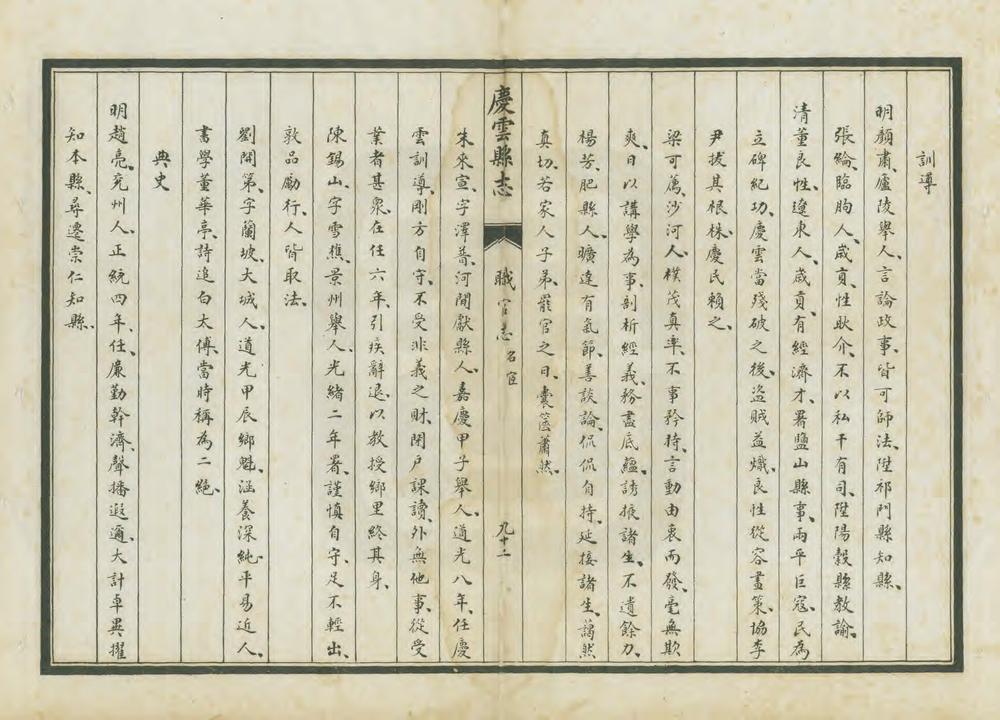 訓導
明顏肅、廬陵舉人、言論政事、皆可師法、陞祁門縣知縣、
張綸、臨朐人、歲貢、性耿介、不以私干有司、陞陽穀縣教諭、
清董良性、遼東人、歲貢、有經濟才、署鹽山縣事、兩平巨寇、民為
立碑紀功、慶雲當殘破之後、盜賊益熾、良性從容畫策、協李
尹拔其根株、慶民賴之、
梁可薦、沙河人、樸茂真率、不事矜持、言動由衷而發、毫無欺
爽、日以講學為事、剖析經義、務盡底蘊、誘掖諸生、不遺餘力、
楊芳、肥縣人、曠達有氣節、善談論、侃侃自持、延接諸生、藹然
真切、若家人子弟、罷官之日、囊篋蕭然、
慶雲縣志
職官志 名宦
九十二
朱來宣、字澤普、河間獻縣人、嘉慶甲子舉人、道光八年、任慶
雲訓導、剛方自守、不受非義之財、閉戶課讀、外無他事、從受
業者甚衆、在任六年、引疾辭退、以教授鄉里終其身、
陳錫山、字雪樵、景州舉人、光緒二年署、謹慎自守、足不輕出、
敦品勵行、人皆取法、
劉開第、字蘭坡、大城人、道光甲辰鄉魁、涵養深純、平易近人、
書學董華亭、詩追白太傅、當時稱為二絕、
典史
明趙亮、兗州人、正統四年、任、廉勤幹濟、聲播遐邇、大計卓異、擢
知本縣、尋遷崇仁知縣、